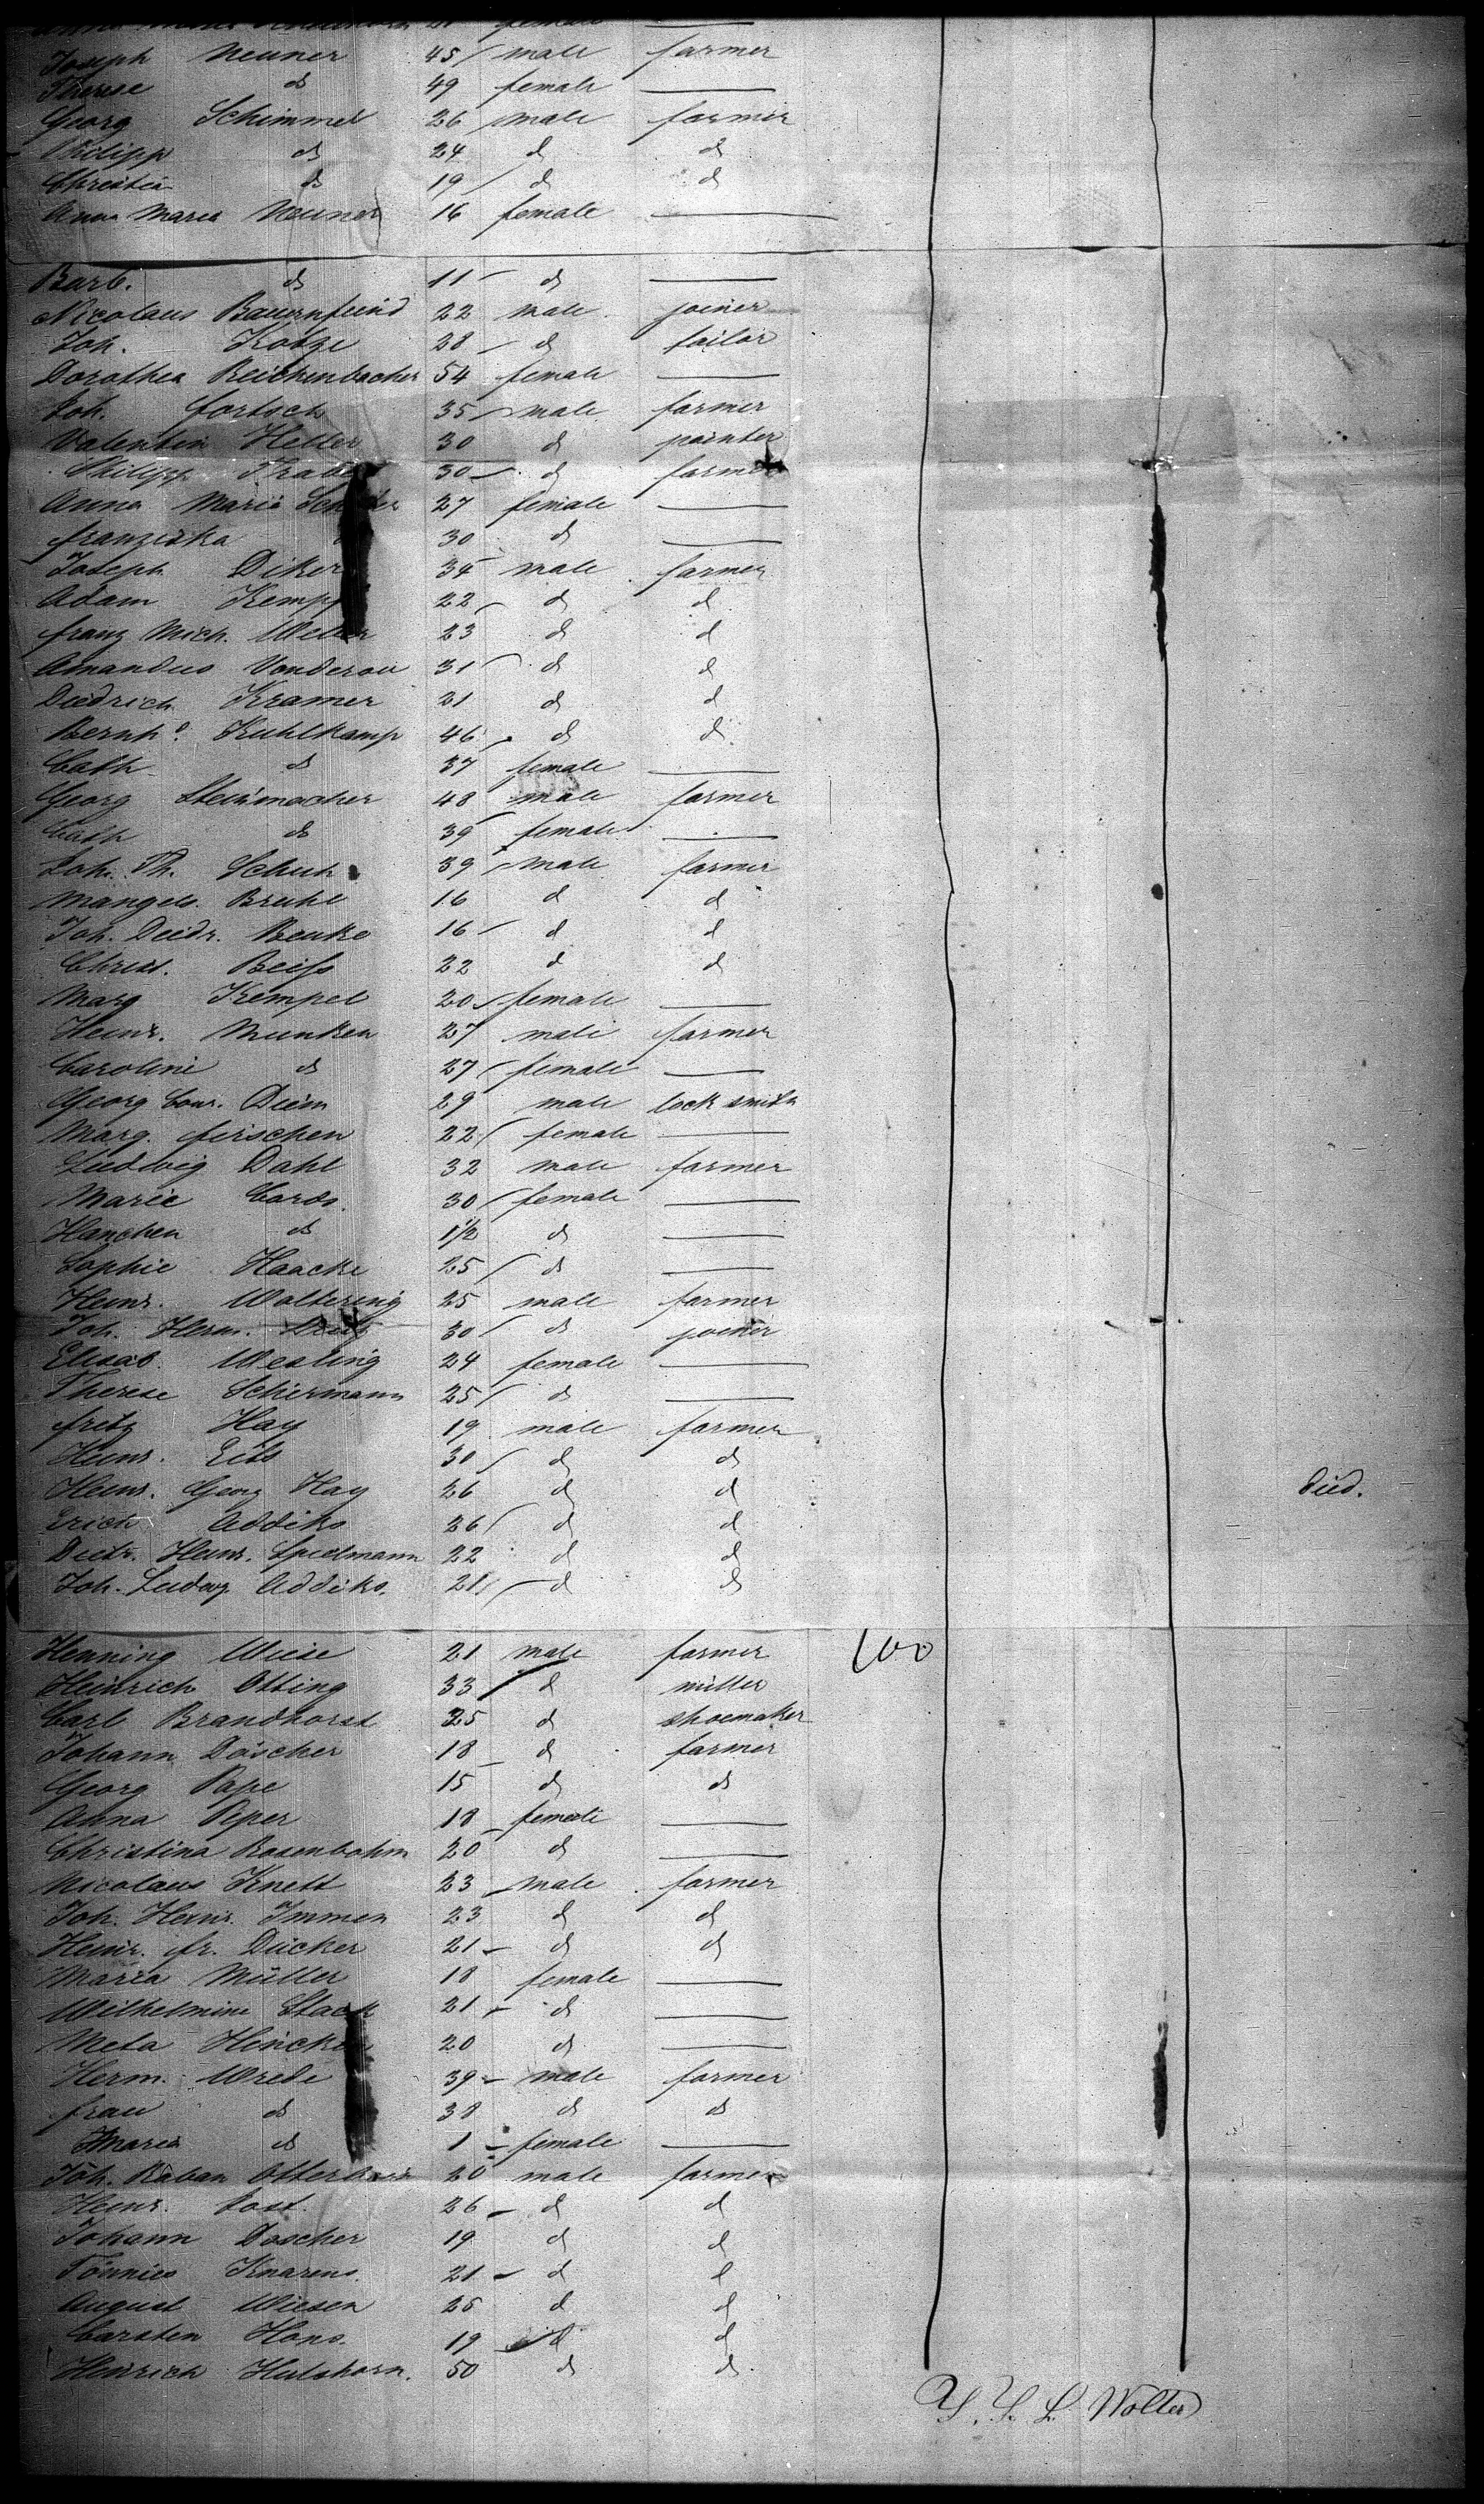 Joseph Neuner 45 male farmer
Therese do 49 female
Georg Schimmel 26 male farmer
Philipp do 24 d do
Christia do 19 d d
Anna Maria Neuner 16 female
Barb. do 11 do
Nicolaus Bauernfeind 22 male joiner
Joh. Kotze 28 d tailor
Dorothea Reichenbacher 54 female
Joh. Fortsch 35 male farmer
Valentin Heller 30 d painter
Philipp 30 d farmer
Anna Maria 27 female
Franziska 30 d
Joseph Diker 34 male farmer
Adam Kempf 22 d d
Franz Mich. 23 d d
Amandus Vonderau 31 d d
Diedrich Kramer 21 d d
Bernhd. Kuhlkamp 46 d d
Cath do 37 female
Georg Steinmacher 48 male farmer
Cath do 39 female
Joh. Th. Schuh 39 male farmer
Mangels Bruhl 16 d d
Joh. Diedr. Renke 16 d d
Christ. Reiss 22 d d
Marg Kempel 20 female
Heinr. Munken 27 male farmer
Caroline do 27 female
Georg Conr. Diem 29 male lock smith
Marg. Ferschen 22 female
Ludwig Dahl 32 male farmer
Marie Cords. 30 female
Hanchen do 1½ do
Sophie Haacke 25 do
Heinr. Woltering 25 male farmer
Joh. Herm. 30 do joiner
Elisab. Wesling 24 female
Therese Schermann 25 d
Fritz Hay 19 male farmer
Heinr. Eits 30 d do
Heinr. Georg Hay 26 d d died.
Erich Addiks 26 d d
Dietr. Heinr. Spielmann 22 d d
Joh. Ludwg. Addiks. 21 d do
Henning Wiese 21 male farmer 100
Heinrich Otting 33 d miller
Carl Brandhorst 25 d shoemaker
Johann Döscher 18 d farmer
Georg Pape 15 d do
Anna Peper 18 female
Christina Rosenbohm 20 d
Nicolaus Knett 23 male farmer
Joh. Heinr. Immen 23 d d
Heinr. Fr. Dücker 21 d d
Maria Müller 18 female
Wilhelmine Stack 21 d
Meta Hincken 20 d
Herm. Wrede 39 male farmer
Frau do 38 do do
Maria do 1 female
Joh. Raban 20 male farmer
Heinr. Post. 26 d d
Johann Doscher 19 d d
Tönnies Knarens. 21 d d
August Wiesen 25 d d
Carsten Hons. 19 d d
Heinrich Hulshorn. 50 do do
Wolters